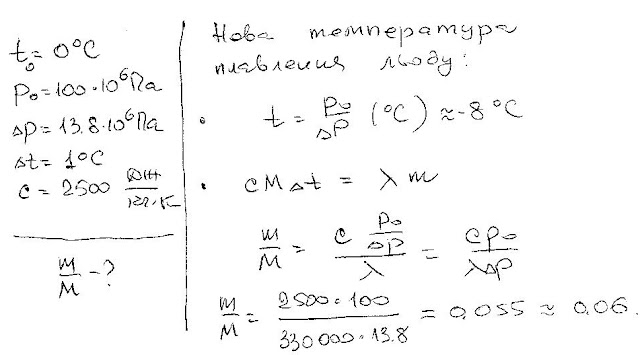 t₀ = 0°C
P₀ = 100·10⁶ Па
Δp = 13,8·10⁶ Па
Δt = 1°C
c = 2500 Дж/кг·К
m/M - ?
Нова температура
плавлення льоду:
t = P₀/Δp (°C) ≈ -8 °C
cMΔt = λm
m/M = (c P₀/Δp)/λ = cP₀/λΔp
m/M = 2500·100/330000·13.8 = 0,055 ≈ 0,06.